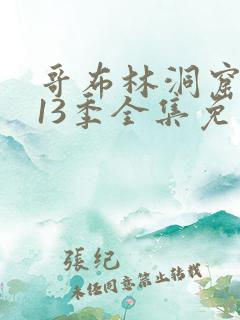 哥布林洞窟
13季全集免
張纪
未经同意禁止转载